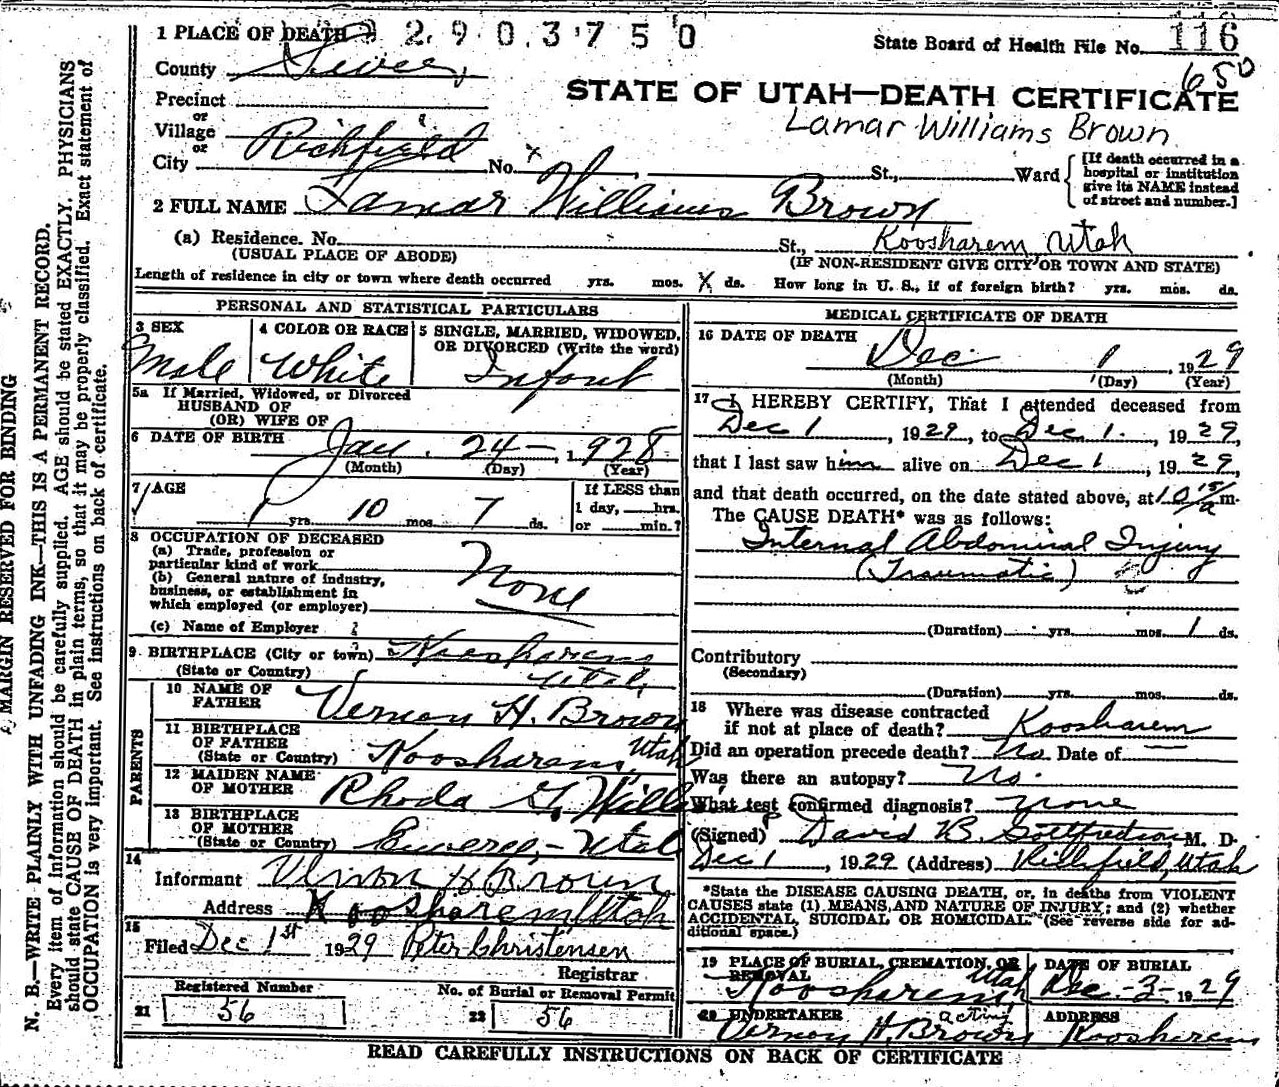 1 PLACE OF DEATH 2903750
State Board of Health File No. 116
County Sevier
650
STATE OF UTAH—DEATH CERTIFICATE
Precinct
or
Village
Lamar Williams Brown
or
City Richfield No. St., Ward
[If death occurred in a hospital or institution give its NAME instead of street and number.]
2 FULL NAME Lamar Williams Brown
(a) Residence. No. St., Koosharem, Utah
(USUAL PLACE OF ABODE) (IF NON-RESIDENT GIVE CITY OR TOWN AND STATE)
Length of residence in city or town where death occurred yrs. mos. X ds. How long in U. S., if of foreign birth? yrs. mos. ds.
PERSONAL AND STATISTICAL PARTICULARS
3 SEX Male
4 COLOR OR RACE White
5 SINGLE, MARRIED, WIDOWED, OR DIVORCED (Write the word) Infant
5a If Married, Widowed, or Divorced
HUSBAND OF
(OR) WIFE OF
6 DATE OF BIRTH Jan. 24 — 1928
(Month) (Day) (Year)
7 AGE 1 yrs. 10 mos. 7 ds.
If LESS than
1 day, hrs.
or min.?
8 OCCUPATION OF DECEASED
(a) Trade, profession or
particular kind of work
(b) General nature of industry,
business, or establishment in
which employed (or employer)
None
(c) Name of Employer
9 BIRTHPLACE (City or town) Koosharem
(State or Country) Utah
PARENTS
10 NAME OF FATHER Vernon H. Brown
11 BIRTHPLACE OF FATHER (State or Country) Koosharem, Utah
12 MAIDEN NAME OF MOTHER Rhoda G. Williams
13 BIRTHPLACE OF MOTHER (State or Country) Emery, - Utah
14
Informant Vernon H Brown
Address Koosharem Utah
15
Filed Dec 1st 1929 Peter Christensen
Registrar
Registered Number No. of Burial or Removal Permit
21 56 22 56
MEDICAL CERTIFICATE OF DEATH
16 DATE OF DEATH
Dec 1, 1929
(Month) (Day) (Year)
17 I HEREBY CERTIFY, That I attended deceased from
Dec 1, 1929, to Dec. 1., 1929,
that I last saw him alive on Dec 1, 1929,
and that death occurred, on the date stated above, at 10 15/a m.
The CAUSE DEATH* was as follows:
Internal Abdominal Injury
(Traumatic)
(Duration) yrs. mos. 1 ds.
Contributory
(Secondary)
(Duration) yrs. mos. ds.
18 Where was disease contracted
if not at place of death? Koosharem
Did an operation precede death? No Date of —
Was there an autopsy? No.
What test confirmed diagnosis? None
(Signed) David B. Gottfredson, M. D.
Dec 1, 1929 (Address) Richfield, Utah
*State the DISEASE CAUSING DEATH, or, in deaths from VIOLENT
CAUSES state (1) MEANS AND NATURE OF INJURY; and (2) whether
ACCIDENTAL, SUICIDAL OR HOMICIDAL. (See reverse side for additional space.)
19 PLACE OF BURIAL, CREMATION, OR REMOVAL
Koosharem, Utah
DATE OF BURIAL
Dec. - 3 - 1929
20 UNDERTAKER acting
Vernon H. Brown
ADDRESS
Koosharem
READ CAREFULLY INSTRUCTIONS ON BACK OF CERTIFICATE
MARGIN RESERVED FOR BINDING
N. B.—WRITE PLAINLY WITH UNFADING INK—THIS IS A PERMANENT RECORD.
Every item of information should be carefully supplied. AGE should be stated EXACTLY. PHYSICIANS
should state CAUSE OF DEATH in plain terms, so that it may be properly classified. Exact statement of
OCCUPATION is very important. See instructions on back of certificate.